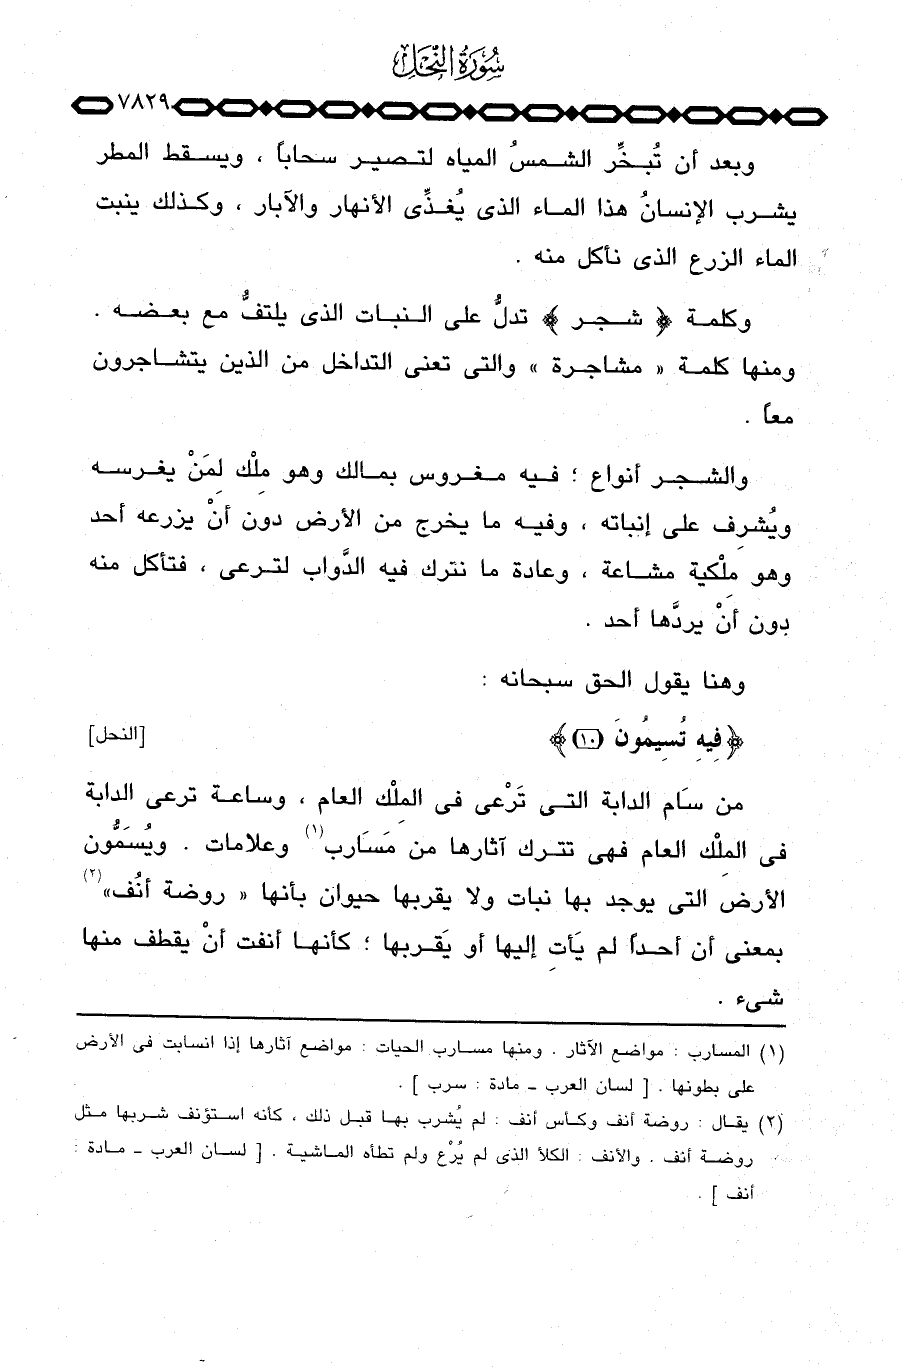 سُورَةُ النَّحْلِ
٧٨٢٩
وبعد أن تُبخِّر الشمسُ المياه لتصير سحاباً ، ويسقط المطر
يشرب الإنسانُ هذا الماء الذى يُغذِّى الأنهار والآبار ، وكذلك ينبت
الماء الزرع الذى نأكل منه .
وكلمة ﴿ شجر ﴾ تدلُّ على النبات الذى يلتفُّ مع بعضه .
ومنها كلمة « مشاجرة » والتى تعنى التداخل من الذين يتشاجرون
معاً .
والشجر أنواع ؛ فيه مغروس بمالك وهو مِلْك لمَنْ يغرسه
ويُشرِف على إنباته ، وفيه ما يخرج من الأرض دون أنْ يزرعه أحد
وهو مِلْكية مشاعة ، وعادة ما نترك فيه الدَّواب لترعى ، فتأكل منه
دون أنْ يردَّها أحد .
وهنا يقول الحق سبحانه :
﴿فِيهِ تُسِيمُونَ (١٠)﴾ [النحل]
من سَام الدابة التى تَرْعى فى المِلْك العام ، وساعة ترعى الدابة
فى المِلْك العام فهى تترك آثارها من مَسَارب(١) وعلامات . ويُسَمُّون
الأرض التى يوجد بها نبات ولا يقربها حيوان بأنها « روضة أنُف»(٢)
بمعنى أن أحداً لم يَأتِ إليها أو يَقربها ؛ كأنها أنفت أنْ يقطف منها
شىء .
(١) المسارب : مواضع الآثار . ومنها مسارب الحيات : مواضع آثارها إذا انسابت فى الأرض
على بطونها . [ لسان العرب – مادة : سرب ] .
(٢) يقال : روضة أنف وكأس أنف : لم يُشرب بها قبل ذلك ، كأنه استؤنف شربها مثل
روضة أنف . والأنف : الكلأ الذى لم يُرْع ولم تطأه الماشية . [ لسان العرب – مادة :
أنف ] .